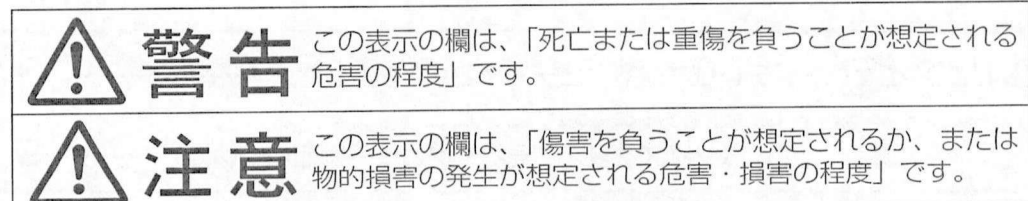 警告
この表示の欄は、「死亡または重傷を負うことが想定される
危害の程度」です。
注意
この表示の欄は、「傷害を負うことが想定されるか、または
物的損害の発生が想定される危害・損害の程度」です。